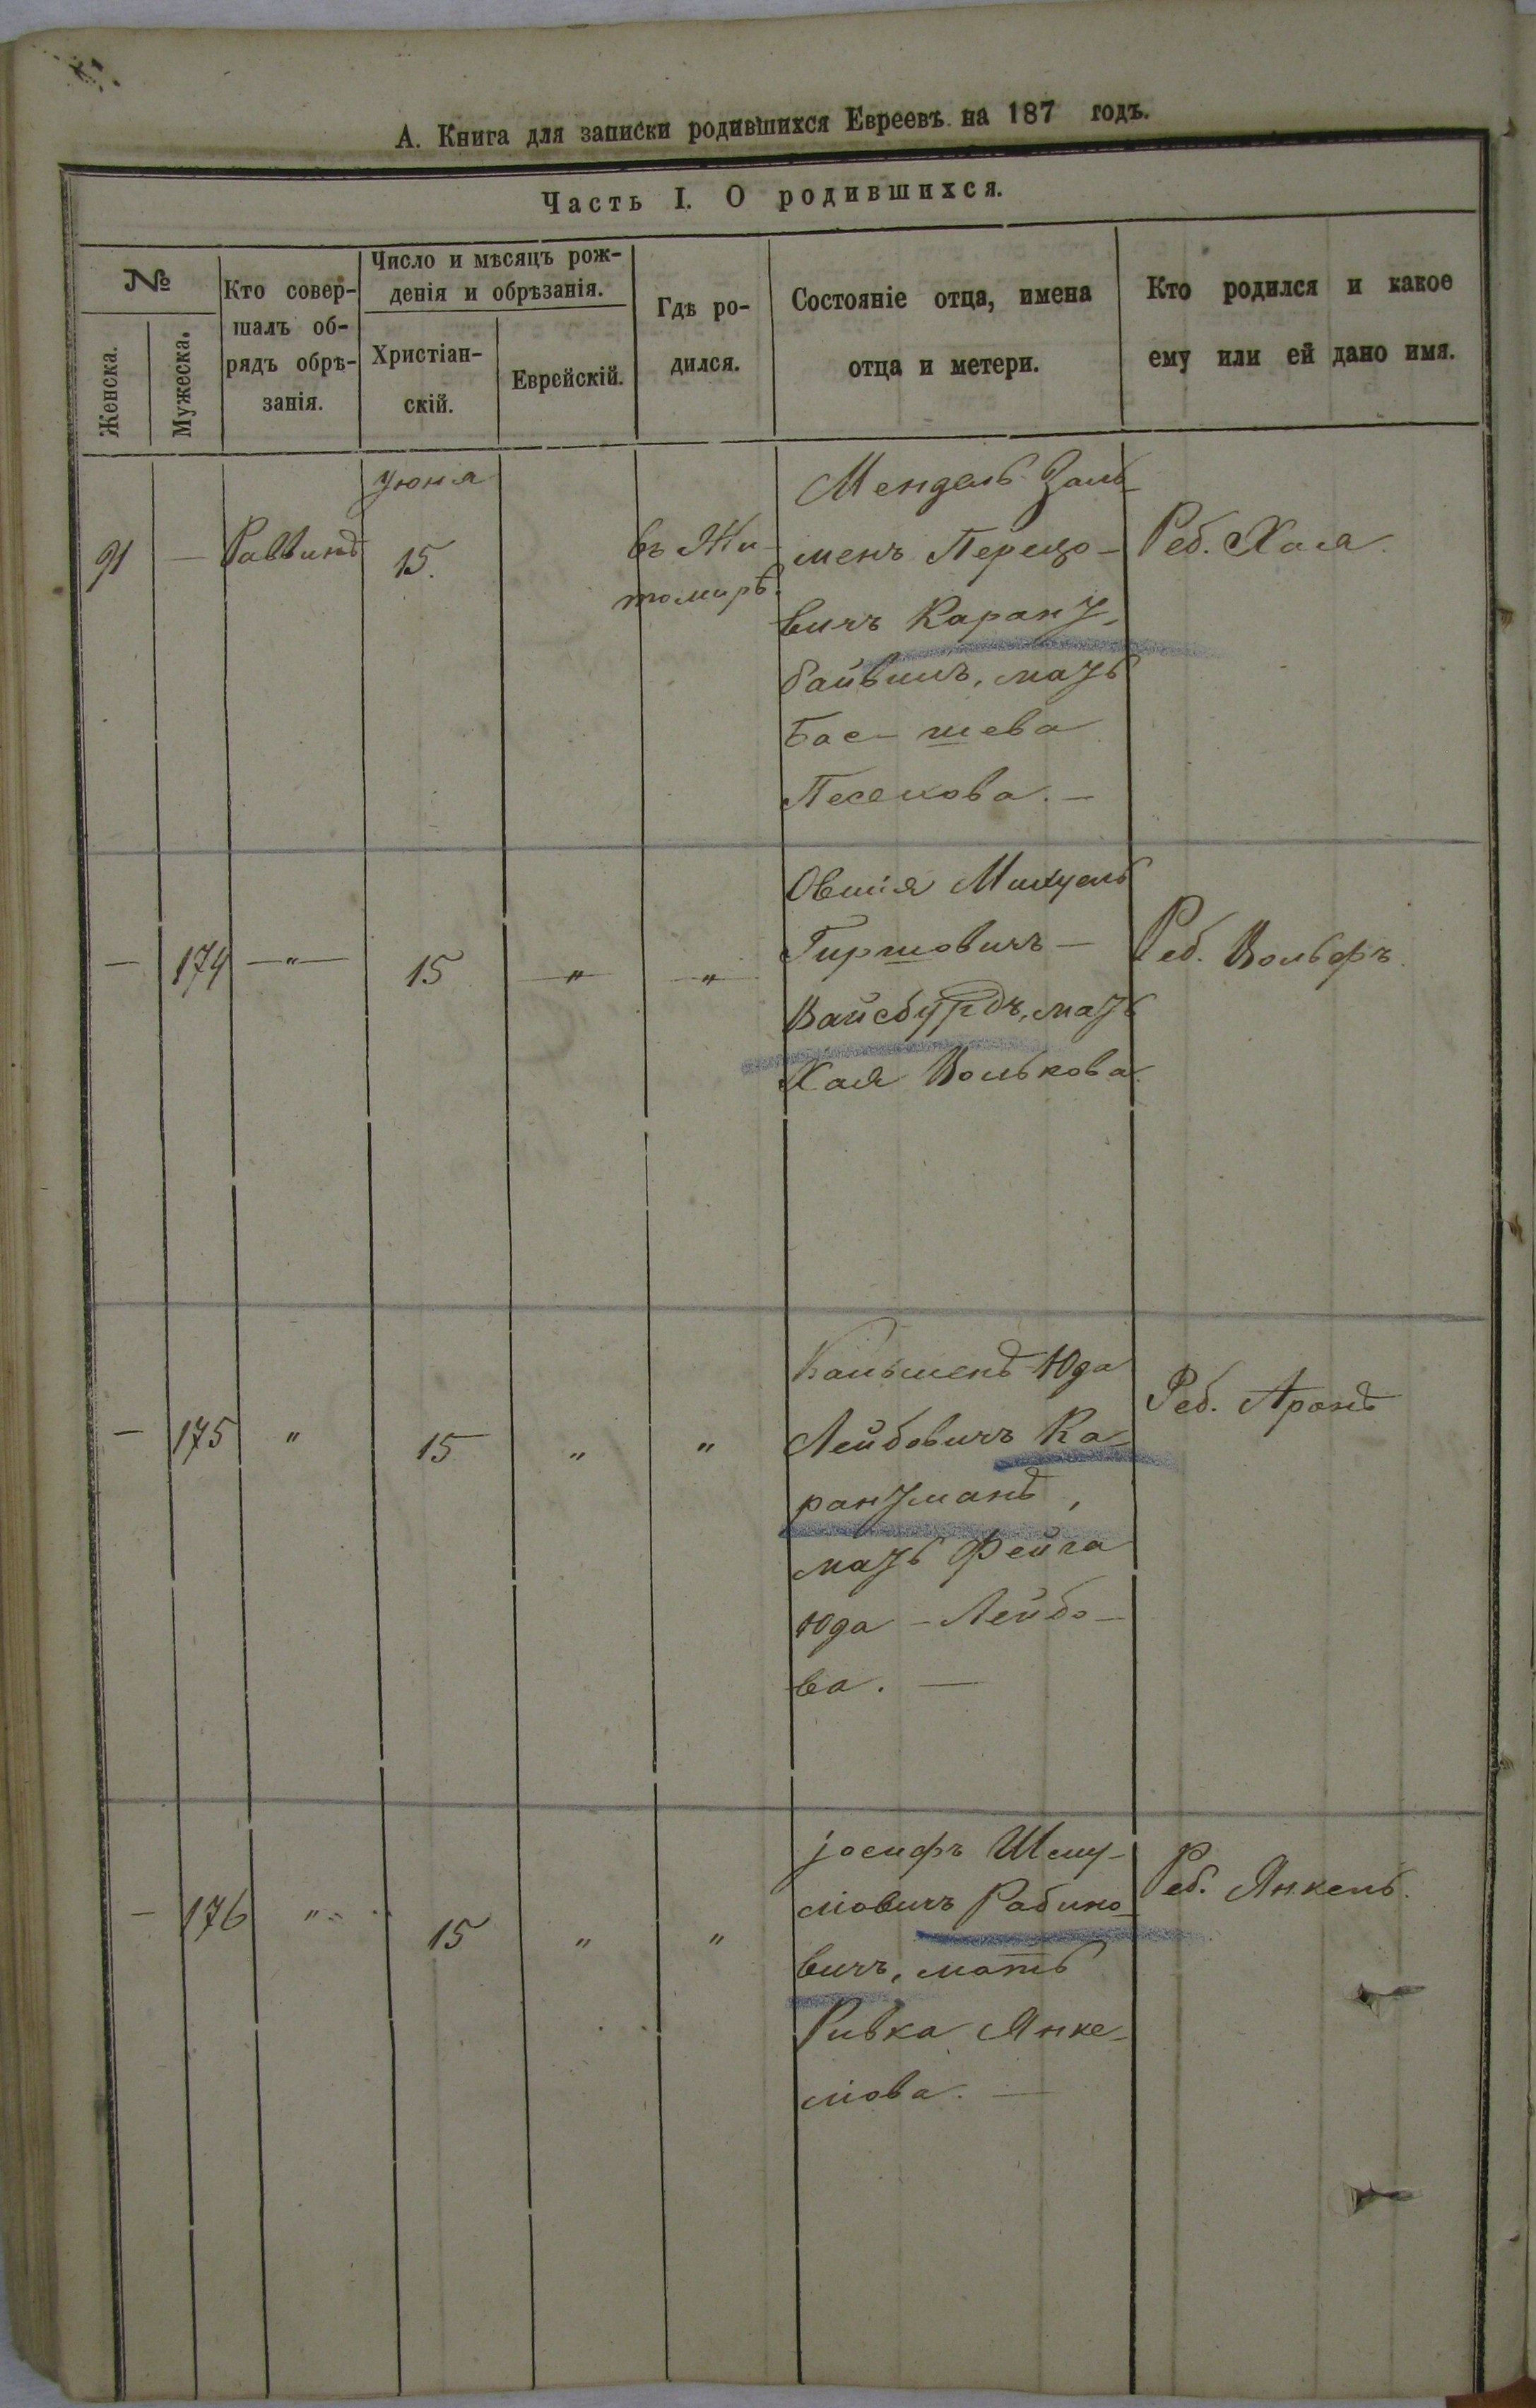 А. Книга для записки родившихся Евреевъ на 187 годъ.
Часть I. О родившихся.
№
Женска.
Мужеска.
Кто совер-
шалъ об-
рядъ обрѣ-
занія.
Число и мѣсяцъ рож-
денія и обрѣзанія.
Христіан-
скій.
Еврейскій.
Гдѣ ро-
дился.
Состояніе отца, имена
отца и метери.
Кто родился и какое
ему или ей дано имя.
91 — Раввинъ
Июня
15.
въ Жи-
томирѣ.
Мендель Заль-
менъ Перецо-
вичъ Карант-
байвель, мать
Бас-шева
Песахова. —
Реб. Хая.
— 174 —"— 15 " "
Овшія Михуель
Гиршовичъ —
Вайсбурдъ, мать
Хая Волькова
Реб. Вольфъ.
— 175 " 15 " "
Кальменъ Юда
Лейбовичъ Ка-
рантманъ,
мать Фейга
Юда - Лейбо-
ва. —
Реб. Аронъ
— 176 " 15 " "
Іосифъ Шму-
ліовичъ Рабино-
вичъ, мать
Ривка Янке-
ліова. —
Реб. Янкель.